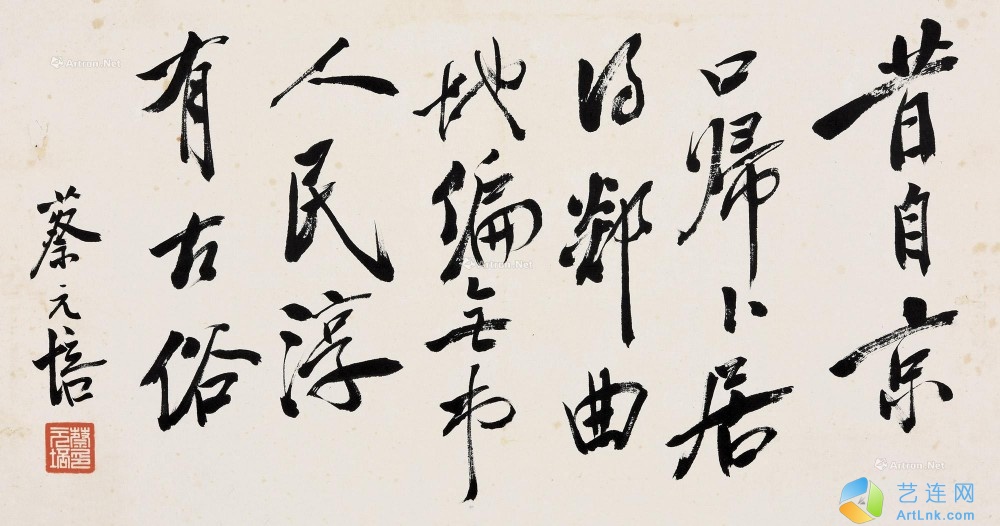 昔自京
口歸卜居
得鄰曲
地偏無市
人民淳
有古俗
蔡元培
蔡元培
Artron.Net
Artron.Net
Artron.Net
Artron.Net
艺连网
ArtLnk.com